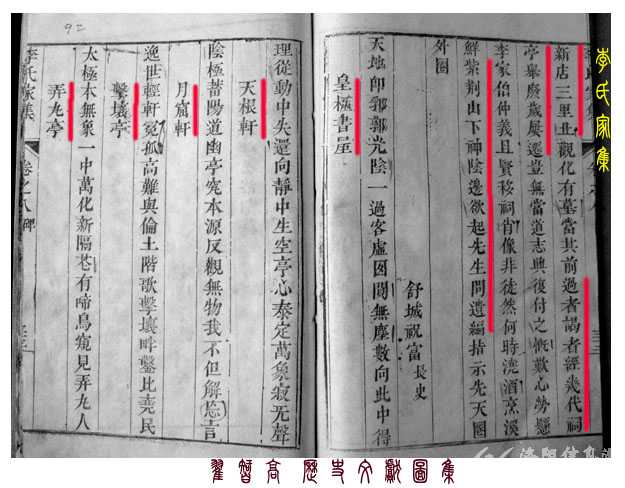 92
李氏家集
新店三里北觀化有墓當其前過者謁者經幾代祠
亭舉廢歲屢遷豈無當道志興復付之慨歎心勞懸
李家伯仲義且賢移祠肖像非徒然何時澆酒烹溪
鮮紫荆山下神陰邊欲起先生問遺編指示先天圈
外圈
舒城祝富長史
天地即郛郭光陰一過客虛閒無塵數向此中得
皇極書屋
理從動中失還向靜中生空亭心泰定萬象寂无聲
天根軒
陰極著陽道幽亭究本源反觀無物我不但解忘言
月窟軒
逸世輕軒冕孤高難與倫土階歌擊壤畔鑿比堯民
擊壤亭
太極本無象一中萬化新隔巷有啼鳥窺見弄丸人
弄丸亭
李氏家集 卷之八 碑
翟智高 歷史文獻圖集